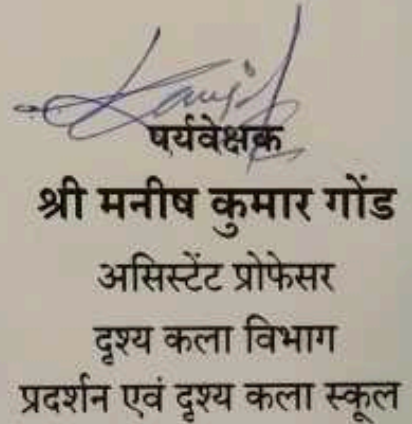 पर्यवेक्षक
श्री मनीष कुमार गोंड
असिस्टेंट प्रोफेसर
दृश्य कला विभाग
प्रदर्शन एवं दृश्य कला स्कूल